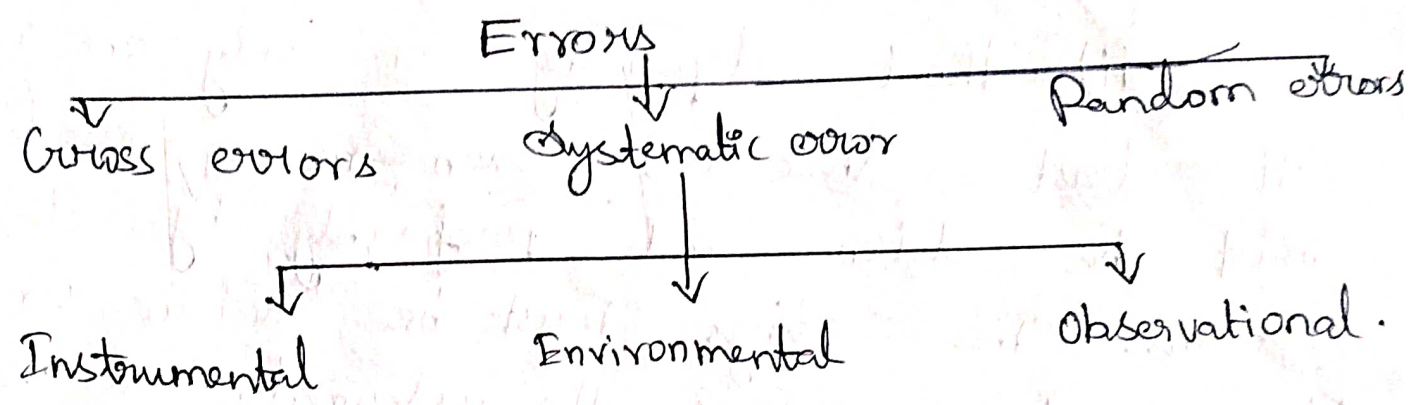 Errors
Gross errors Systematic error Random errors
Instrumental Environmental Observational.